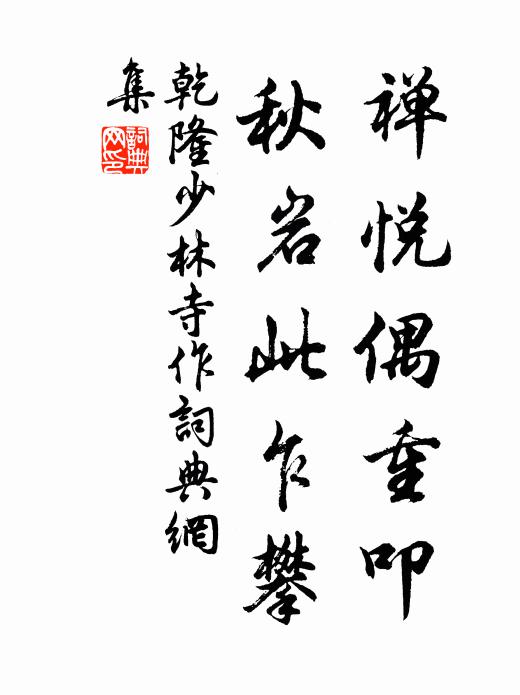 禅悦偶重叩
秋岩此乍攀
乾隆少林寺作詞典網
集
詞典
网印